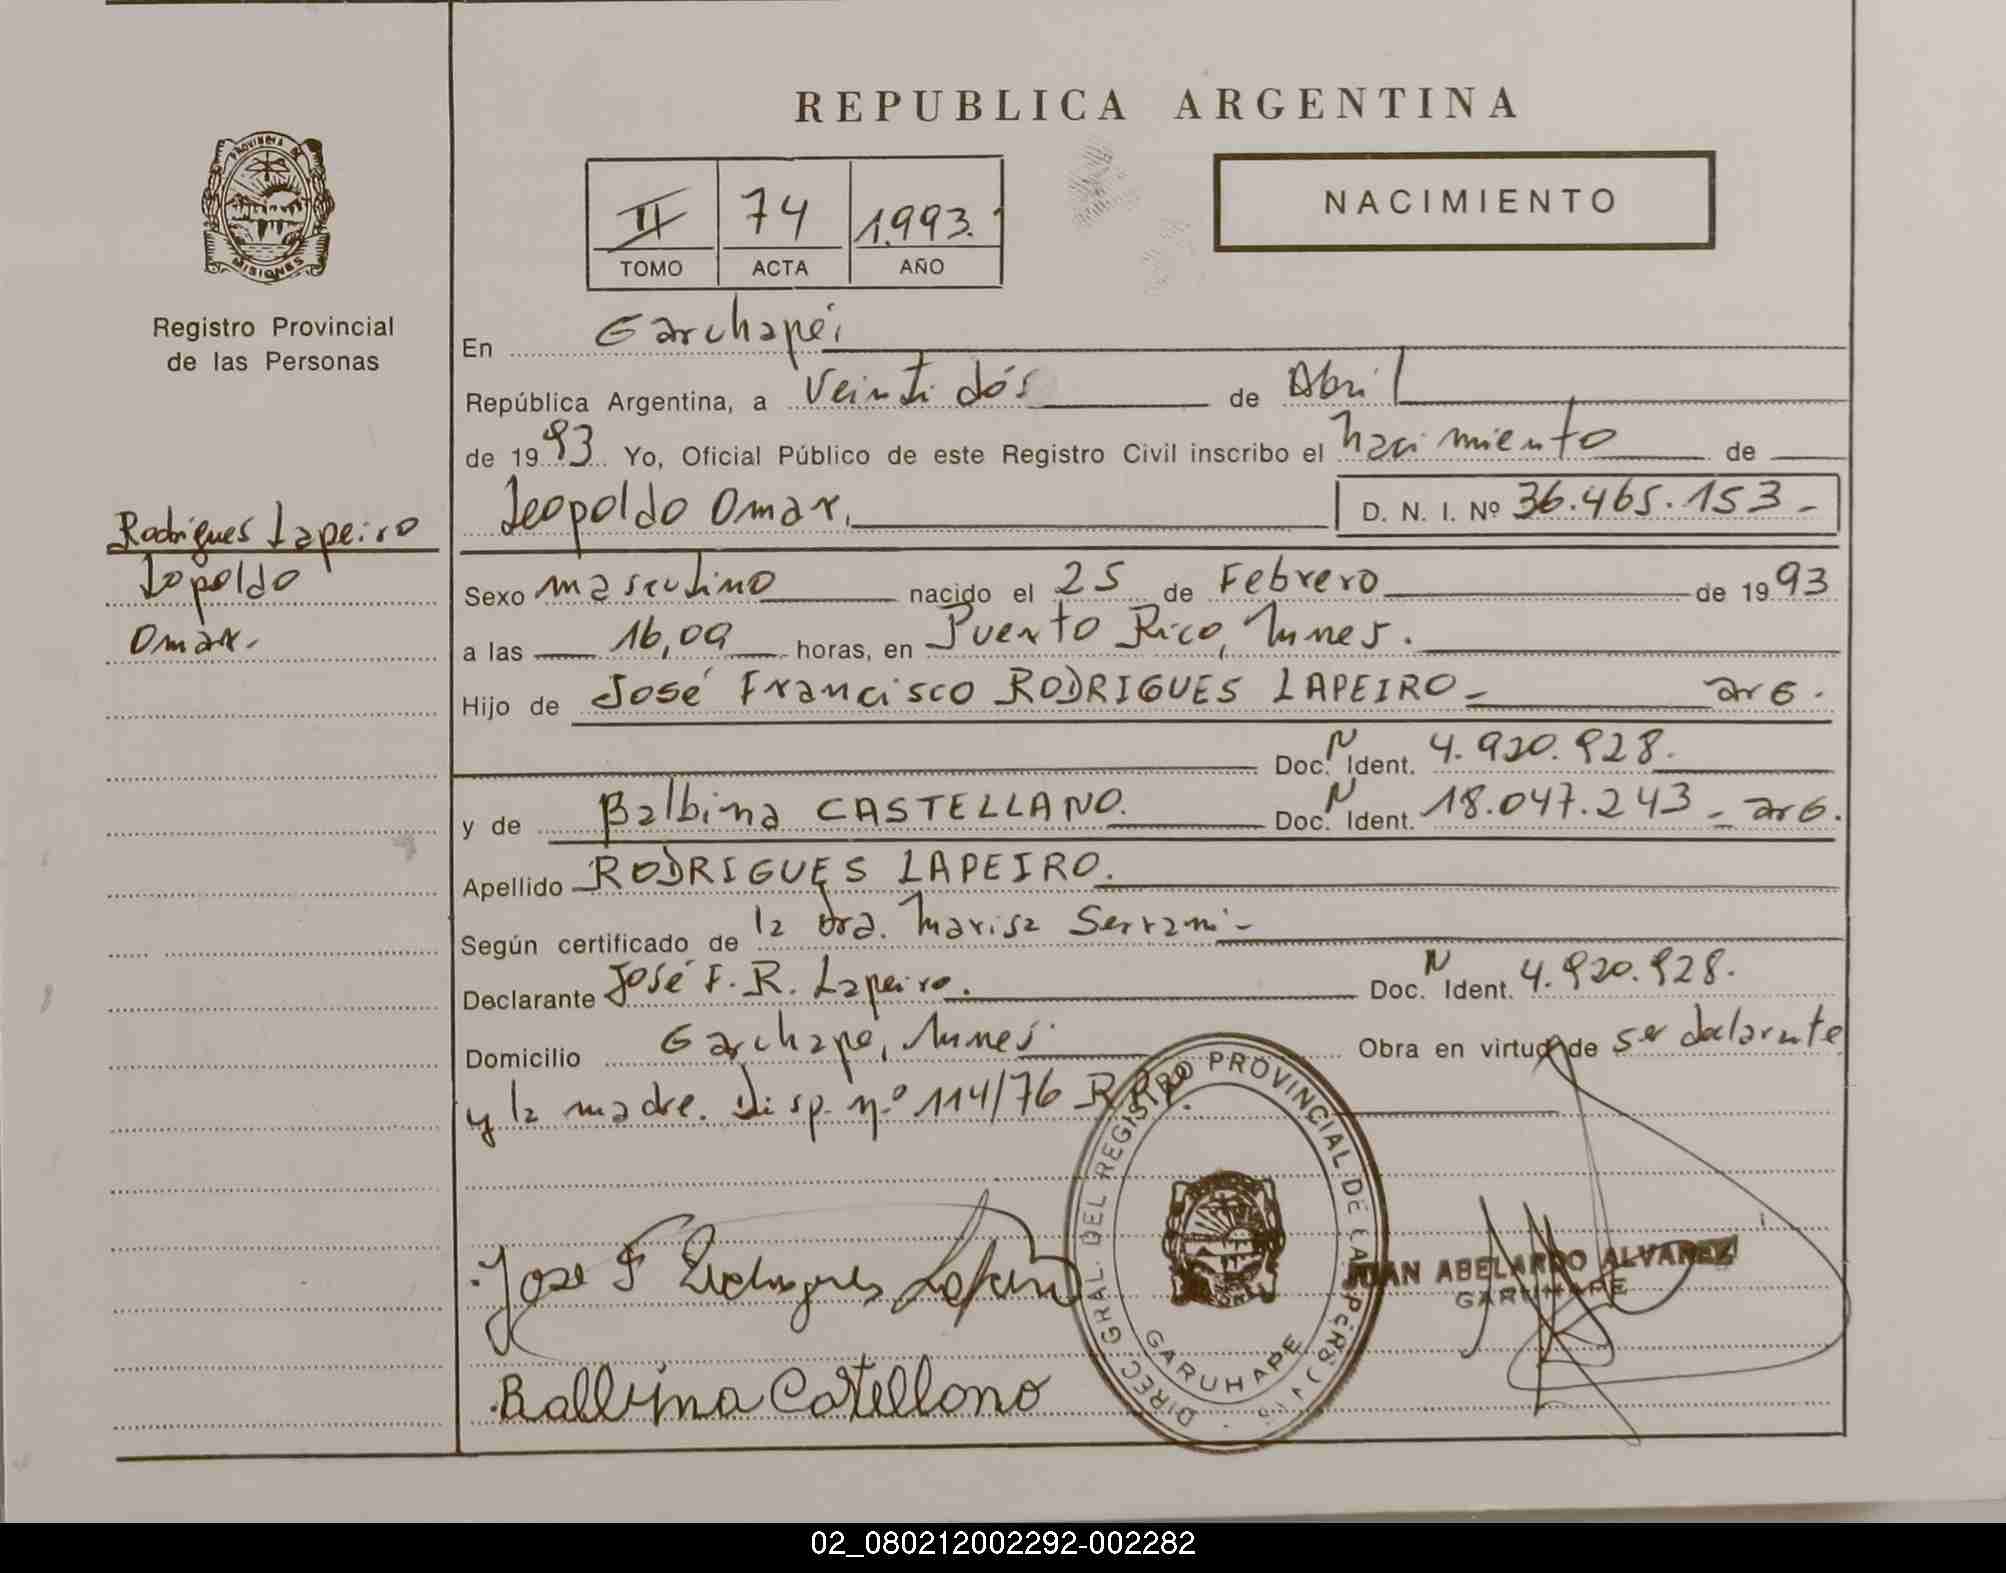 REPUBLICA ARGENTINA
PROVINCIA DE MISIONES
Registro Provincial
de las Personas
II 74 1.993.
TOMO ACTA AÑO
NACIMIENTO
En Garuhapé,
República Argentina, a Veinti dós de Abril
de 1993 Yo, Oficial Público de este Registro Civil inscribo el nacimiento de
Leopoldo Omar. D. N. I. Nº 36.465.153 -
Rodrigues Lapeiro
Leopoldo
Omar.
Sexo masculino nacido el 25 de Febrero de 1993
a las 16,09 horas, en Puerto Rico, Mnes.
Hijo de José Francisco RODRIGUES LAPEIRO - arg.
Doc. N Ident. 4.920.928.
y de Balbina CASTELLANO. Doc. N Ident. 18.047.243 - arg.
Apellido RODRIGUES LAPEIRO.
Según certificado de la Dra. Marisa -
Declarante José F. R. Lapeiro. Doc. N Ident. 4.920.928.
Domicilio Garuhapé, Mnes. Obra en virtud de ser declarante
y la madre. Disp. nº 114/76 R.P.P.
Jose F Rodrigues Lapeiro
Balbina Castellano
DIREC. GRAL. DEL REGISTRO PROVINCIAL DE LAS PERSONAS
GARUHAPE
JUAN ABELARDO ALVAREZ
GARUHAPE
02_080212002292-002282